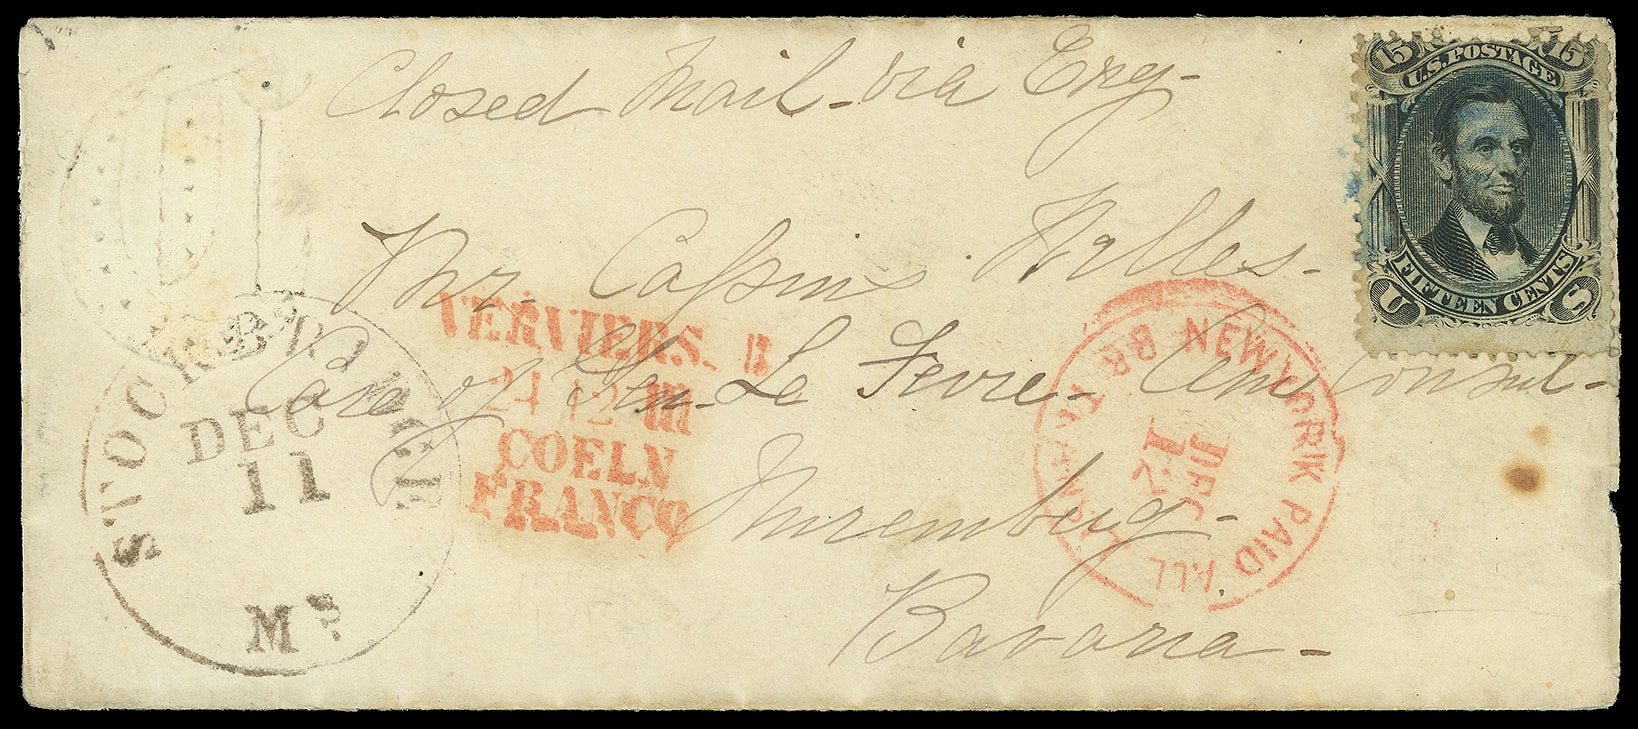 Closed Mail - via Eng -
15 15
U.S. POSTAGE
FIFTEEN CENTS.
U S
Mr. Cassius Walles -
Care of Gen. Le Fevre - Am Consul -
Nuremburg -
Bavaria -
STOCKBRIDGE
DEC
11
Ms
VERVIERS.
24 12 III
COELN
FRANCO
NEW YORK PAID ALL BR. TRANSIT
DEC
12